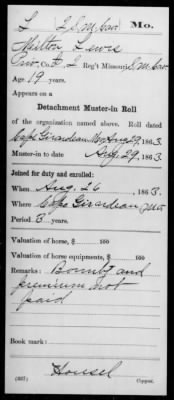 L 2 S.M. Cav. Mo.
Milton Lewis
Pvt., Co. L, 2 Reg't Missouri S.M. Cav.
Age 19 years.
Appears on a
Detachment Muster-in Roll
of the organization named above. Roll dated
Cape Girardeau Mo Aug 29, 1863
Muster-in to date Aug. 29, 1863.
Joined for duty and enrolled:
When Aug. 26, 1863.
Where Cape Girardeau, Mo
Period 3 years.
Valuation of horse, $ 100
Valuation of horse equipments, $ 100
Remarks: Bounty and
premium not
paid
Book mark:
Housel
(337) Copyist.